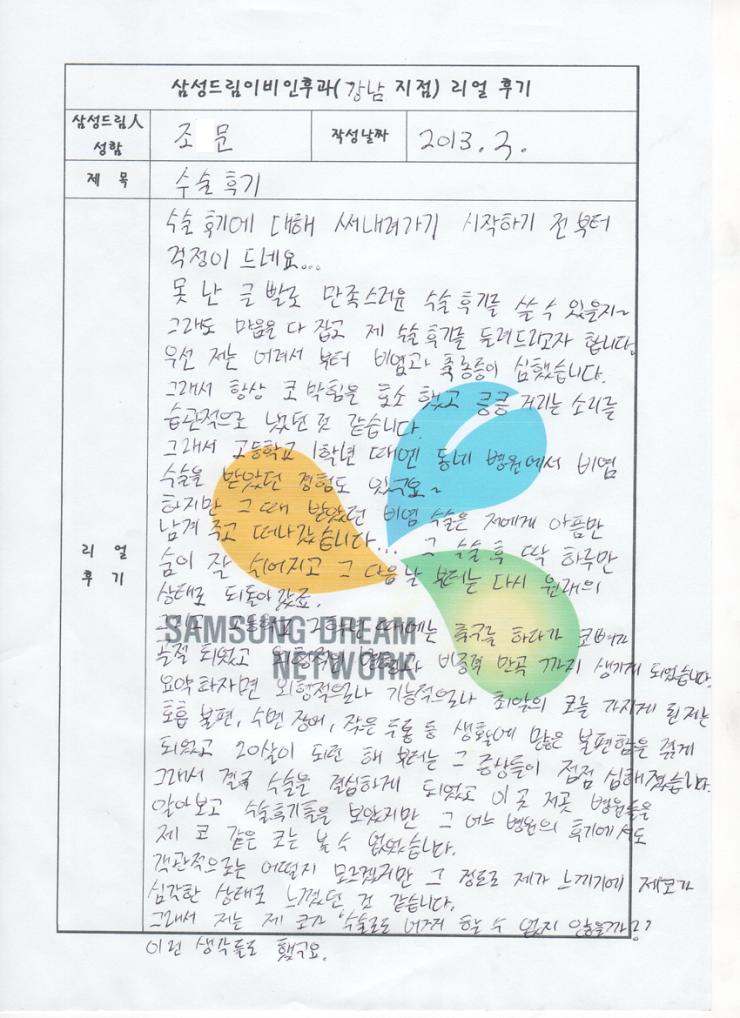 삼성드림이비인후과(강남 지점) 리얼 후기
삼성드림人 성함
조 문
작성날짜
2013. 2.
제 목
수술 후기
리 얼 후 기
수술 후기에 대해 써내려가기 시작하기 전부터
걱정이 드네요...
못난 글빨로 만족스러운 수술후기를 쓸 수 있을지~
그래도 마음을 다 잡고 제 수술후기를 들려드리고자 합니다.
우선 저는 어려서 부터 비염과 축농증이 심했습니다.
그래서 항상 코 막힘을 호소 했고 킁킁 거리는 소리를
습관적으로 냈던 것 같습니다.
그래서 고등학교 1학년 때엔 동네 병원에서 비염
수술을 받았던 경험도 있구요~
하지만 그 때 받았던 비염 수술은 저에게 아픔만
남겨 주고 떠나갔습니다... 그 수술 후 딱 하루만
숨이 잘 쉬어지고 그 다음날 부터는 다시 원래의
상태로 되돌아 갔죠.
때에는 축구를 하다가 코뼈가
골절 되었고 비중격 만곡 까지 생기게 되었습니다.
SAMSUNG DREAM
NETWORK
요약하자면 외형적으로나 기능적으로나 최악의 코를 가지게 된 저는
호흡 불편, 수면 장애, 잦은 두통 등 생활에 많은 불편함을 겪게
되었고 20살이 되던 해 부터는 그 증상들이 점점 심해졌습니다.
그래서 결국 수술을 결심하게 되었고 이곳 저곳 병원들을
알아보고 수술후기들을 보았지만 그 어느 병원의 후기에서도
제 코 같은 코는 볼 수 없었습니다.
객관적으로는 어떨지 모르겠지만 그 정도로 제가 느끼기에 제코가
심각한 상태로 느꼈던 것 같습니다.
그래서 저는 제 코가 수술로도 할 수 없지 않을까?
이런 생각들도 했구요.